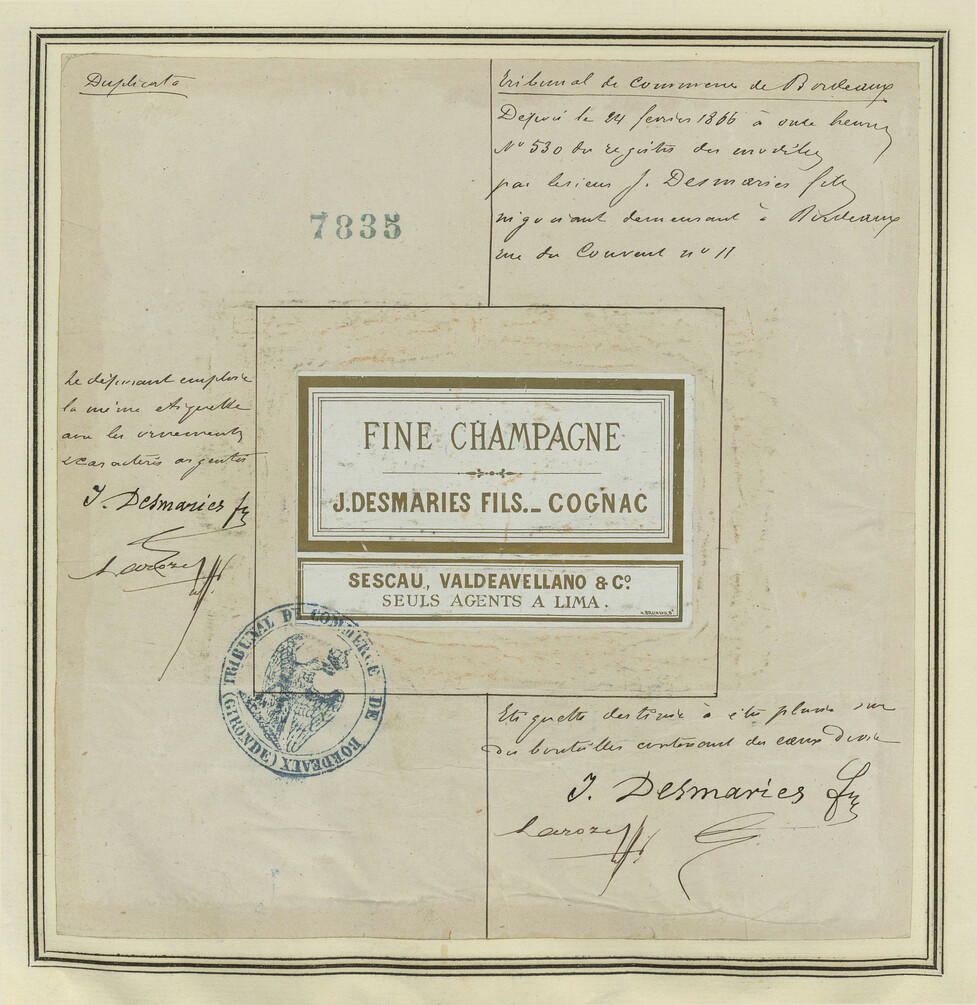 Duplicata
Tribunal de Commerce de Bordeaux
Déposé le 24 février 1866 à onze heures
N° 530 du registre des modèles
par le sieur J. Desmaries fils
négociant demeurant à Bordeaux
rue du Couvent n° 11
7835
Le déposant emploie
la même étiquette
avec les ornements
& caractères argentés
J. Desmaries fs
Laroze
FINE CHAMPAGNE
J. DESMARIES FILS._ COGNAC
SESCAU, VALDEAVELLANO & Cº.
SEULS AGENTS A LIMA.
TRIBUNAL DE COMMERCE DE BORDEAUX (GIRONDE)
Etiquette destinée à être placée sur
des bouteilles contenant des eaux de vie
J. Desmaries fs
Laroze